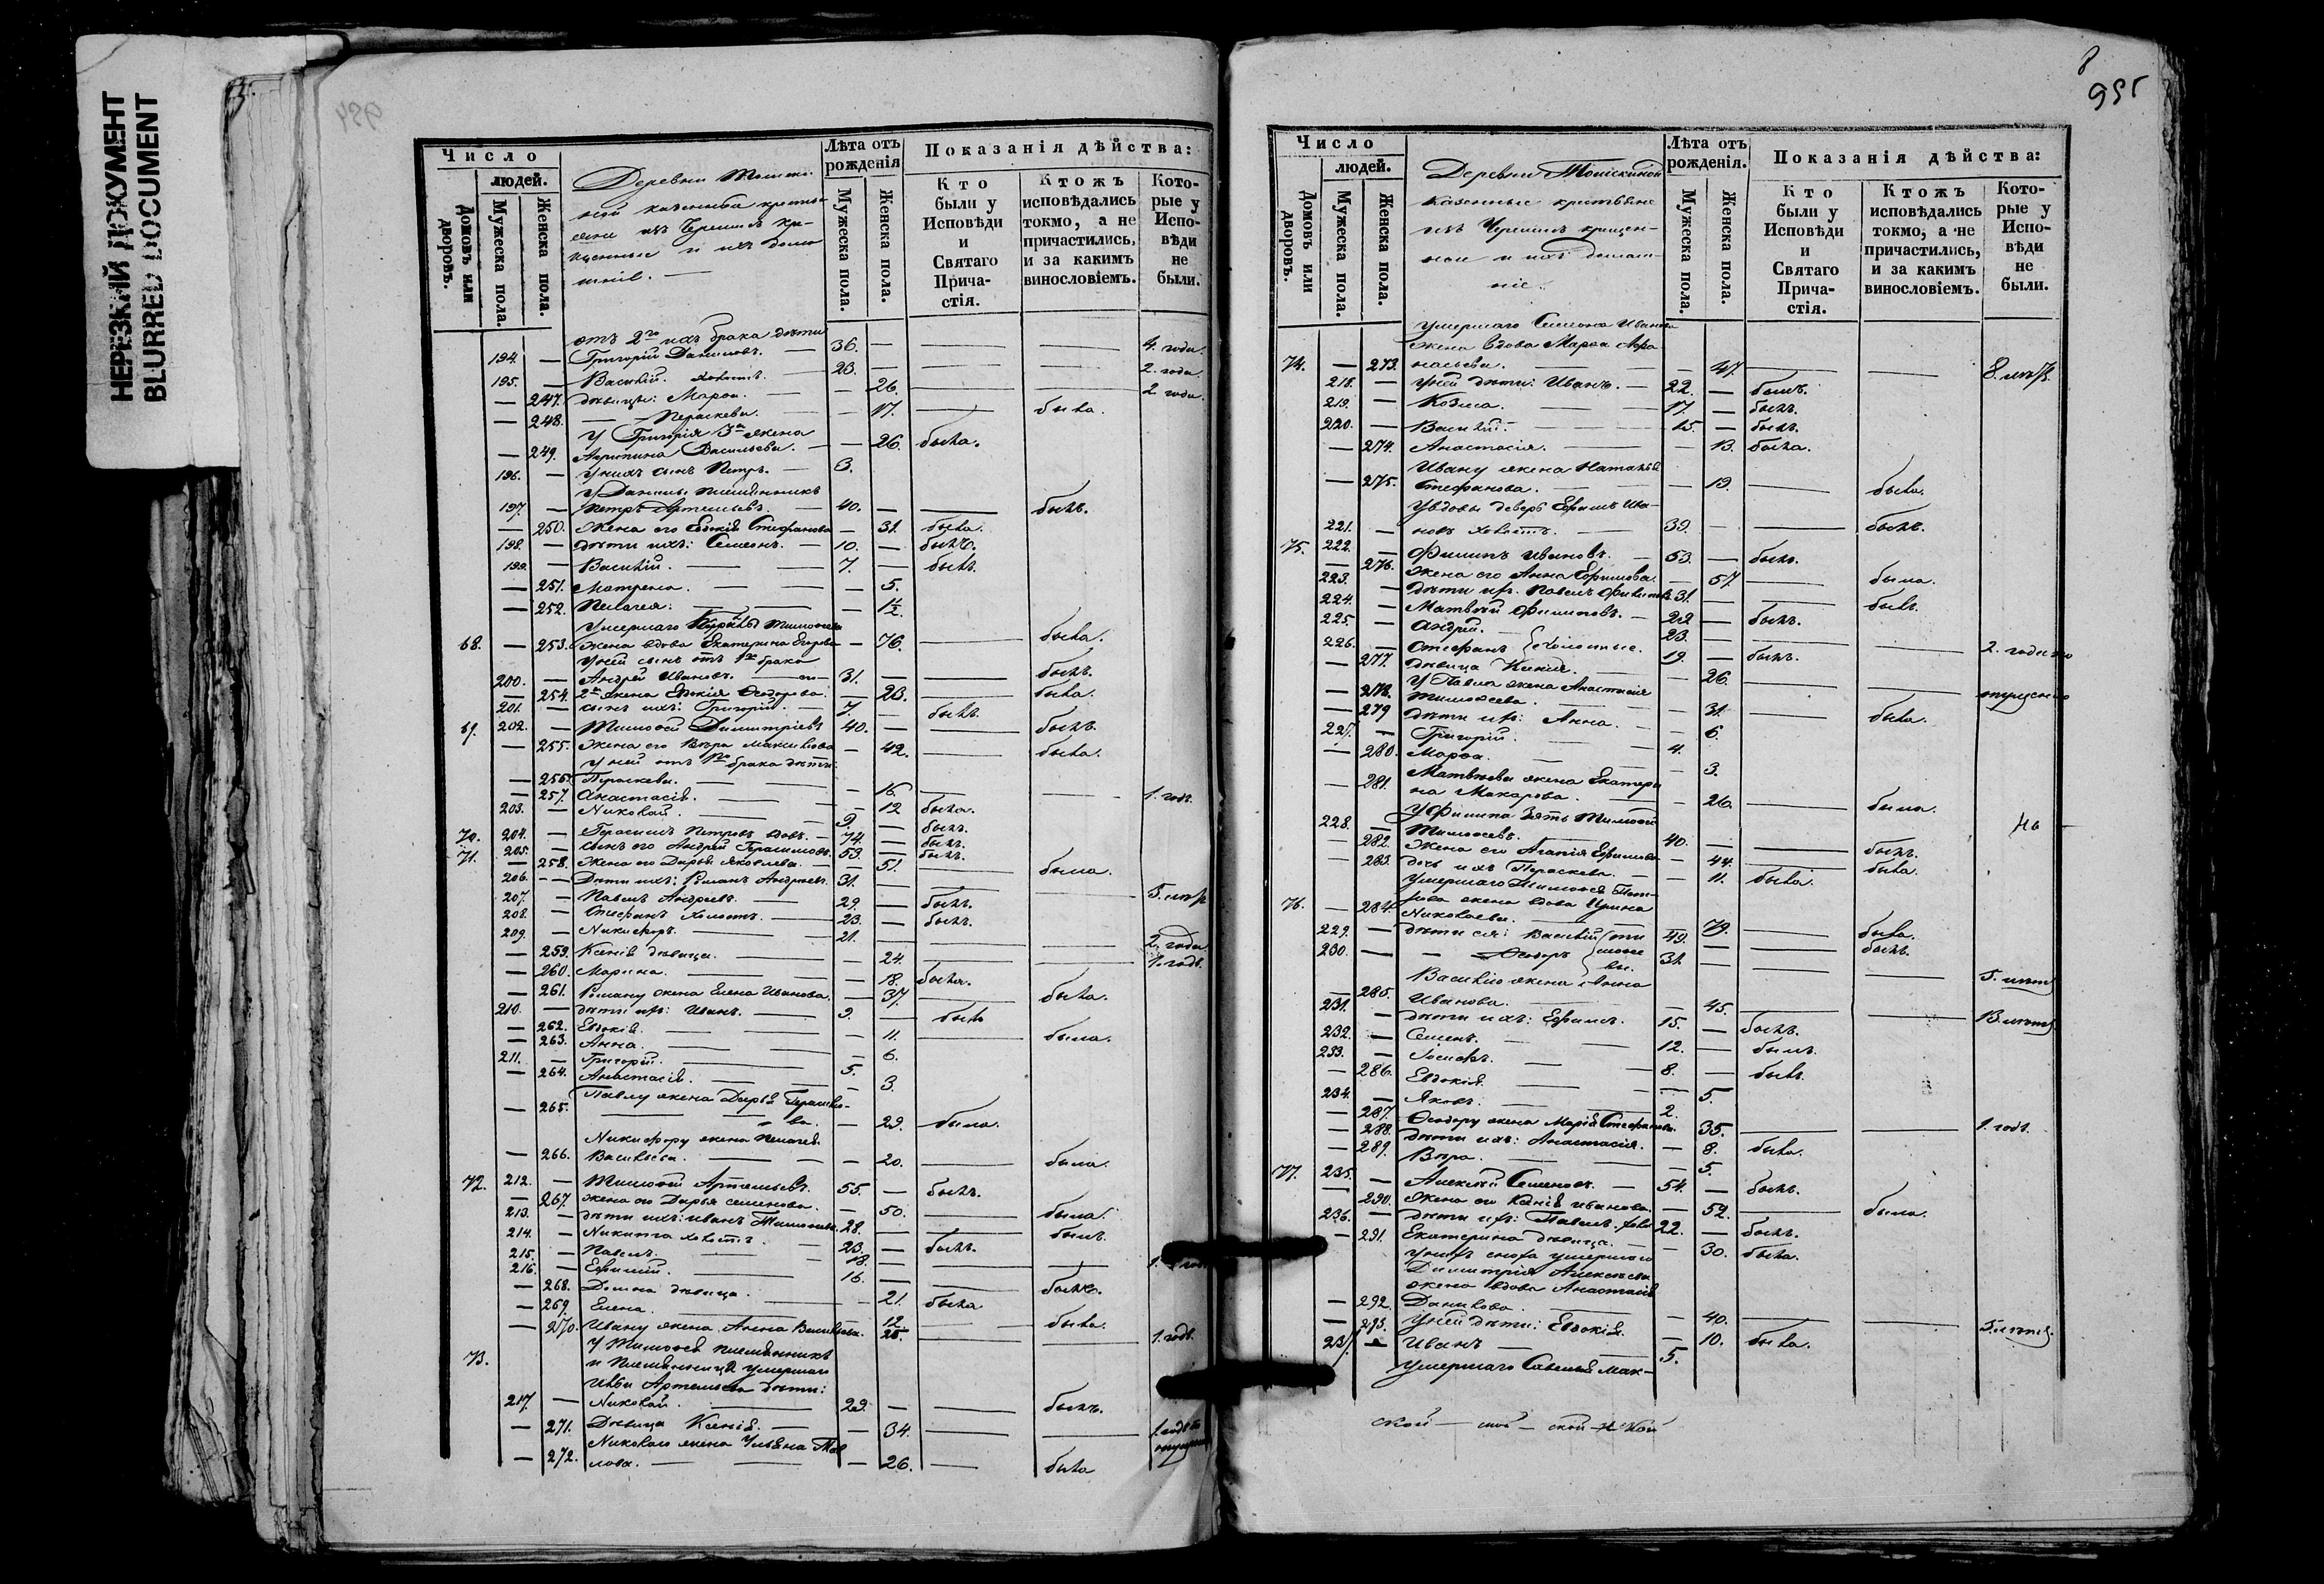 НЕРЕЗКИЙ ДОКУМЕНТ
BLURRED DOCUMENT
984
Число
людей.
Домовъ или дворовъ.
Мужеска пола.
Женска пола.
Лѣта отъ рожденія
Мужеска пола.
Женска пола.
Показанія дѣйства:
Кто были у Исповѣди и Святаго Прича-стія.
Ктожъ исповѣдались токмо, а не причастились, и за какимъ винословіемъ.
Кото-рые у Испо-вѣди не были.
отъ 2го ихъ брака дѣти
194. — Григорій Даниловъ. — 36. — 4. года.
195. — Василій. — 23. 2. года.
— 247. дѣвицы: Марѳа. — 26. 2 года.
— 248. — Пераскева. — 17. — была.
У Григорія 3я жена
— 249. Агрипина Васильева. — 26. была.
196. — У нихъ сынъ Петръ. — 3.
У Данилы племянникъ
197. — Петръ Артемьевъ. — 40. — былъ.
— 250. Жена его Евдокія Стефанова — 31. была.
198. — дѣти ихъ: Семеонъ. — 10. — былъ.
199. — Василій. — 7. — былъ.
— 251. Матрена. — 5.
— 252. Пелагея. — 1½.
Умершаго Тимофеева
68. — 253. жена вдова Екатерина Егорова — 76. — была.
У ней сынъ отъ 1го брака
200. — Андрей Ивановъ. — 31. — былъ.
— 254. 2я жена Евдокія Ѳеодорова. — 23. — была.
201. — сынъ ихъ: Григорій. — 7. — былъ.
69. 202. — Тимоѳей Димитріевъ 40. — былъ.
— 255. Жена его Вѣра Максимова — 42. — была.
У ней отъ 1го брака дѣти:
— 256. Пераскева. — 16. — 1. годъ.
— 257. Анастасія. — 12 была.
203. — Николай. — 9. — былъ.
70. 204. — Герасимъ Петровъ вдовъ. — 74. — былъ.
71. 205. — сынъ его Андрей Герасимовъ. 53. — былъ.
— 258. Жена его Дарья Яковлева. — 51. — была.
206. — Дѣти ихъ: Романъ Андреевъ. 31. — 5. лѣтъ
207. — Павелъ Андреевъ. — 29. — былъ.
208. — Стефанъ холостъ. — 23. — былъ.
209. — Никифоръ. — 21. — 2. года
— 259. Ксенія дѣвица. — 24. — 1. годъ.
— 260. Марина. — 18. была.
— 261. Роману жена Елена Иванова. — 37. — была.
210. — дѣти ихъ: Иванъ. — 9. — былъ
— 262. Евдокія. — 11. — была.
— 263. Анна. — 6.
211. — Григорій. — 5.
— 264. Анастасія. — 3.
Павлу жена Дарья Герасимо-
— 265. ва. — 29. была.
Никифору жена Пелагея
— 266. Васильева. — 20. — была.
72. 212. — Тимоѳей Артемьевъ. 55. — былъ.
— 267. жена его Дарья Семенова. — 50. — была.
213. — дѣти ихъ: Иванъ Тимоѳеевъ. 28. — былъ.
214. — Никита холостъ. — 23. — былъ.
215. — Павелъ. — 18. — 1. годъ
216. — Ефимій. — 16. — былъ.
— 268. Домна дѣвица. — 21. была
— 269. Елена. — 12. — была.
— 270. Ивану жена Анна Васильева. 25. — 1. годъ.
У Тимоѳея племянникъ
73. и племянница умершаго
Ивана Артемьева дѣти:
217. — Николай. — 29. — былъ.
— 271. Дѣвица Ксенія. — 34. — 1. годъ
Николаю жена Ульяна Пав
— 272. лова. — 26. — была
8
955
Число
людей.
Домовъ или дворовъ.
Мужеска пола.
Женска пола.
Деревни
казенные крестьяне
изъ Черемисъ крещен-
ные и ихъ домаш-
ніе.
Лѣта отъ рожденія.
Мужеска пола.
Женска пола.
Показанія дѣйства:
Кто были у Исповѣди и Святаго Прича-стія.
Ктожъ исповѣдались токмо, а не причастились, и за какимъ винословіемъ.
Кото-рые у Испо-вѣди не были.
умершаго Семеона Иванова
жена вдова Марѳа Аѳа-
74. — 273. насьева. — 47. — 8. лѣтъ.
218. — У ней дѣти: Иванъ. — 22. — былъ.
219. — Козма. — 17. — былъ.
220. — Василій. — 15. — былъ.
— 274. Анастасія. — 13. была.
Ивану жена Наталья
— 275. Стефанова. — 19. — была.
У вдовы деверь Ефимъ Ива-
221. — новъ холостъ. — 39. — былъ.
75. 222. — Филипъ Ивановъ. — 53. — былъ.
— 276. Жена его Анна Ефимова. — 57 — была.
223. — Дѣти ихъ: Павелъ Филиповъ 31. — былъ.
224. — Матвѣй Филиповъ. — 22 — былъ.
225. — Андрей. — 23. — 2. года
226. — Стефанъ холостые. 19. — былъ.
— 277. Дѣвица Ксенія. — 26.
У Павла жена Анастасія
— 278. Тимоѳеева. — 31. — была.
— 279 Дѣти ихъ: Анна. — 6.
227. — Григорій. — 4.
— 280. Марѳа. — 3.
Матвѣева жена Екатери
— 281. на Макарова. — 26. — была.
У Филипа зять Тимоѳей
228. — Тимоѳеевъ. — 40. — былъ.
— 282. Жена его Агапія Ефимова — 44. — была.
— 283. дочь ихъ Пераскева. — 11. была.
умершаго Тимоѳея Пет-
рова жена вдова Ирина
76. — 284. Николаева. — 79. — была.
229. — дѣти ея: Василій 49. — былъ.
230. — Ѳеодоръ Тимоѳеевы. 31. — 5. лѣтъ
Василію жена Анна
— 285. Иванова. — 45. — 13. лѣтъ
231. — дѣти ихъ: Ефимъ. 15. — былъ.
232. — Семенъ. — 12. — былъ.
233. — Іосифъ. — 8. — былъ.
— 286. Евдокія. — 5.
234. — Яковъ. — 2.
— 287. Ѳеодору жена Марія Стефанова. 35. — 1. годъ.
— 288. дѣти ихъ: Анастасія. — 8. была.
— 289. Вѣра. — 5.
77. 235. — Алексѣй Семеновъ. — 54. — былъ.
— 290. Жена его Ксенія Иванова. — 52. — была.
236. — дѣти ихъ: Павелъ 22. — былъ.
— 291. Екатерина дѣвица. — 30. была.
У нихъ сноха умершаго
Димитрія Алексѣева
жена вдова Анастасія
— 292. Данилова. — 40. — 5. лѣтъ.
— 293. У ней дѣти: Евдокія. — 10. была.
237. — Иванъ — 5.
умершаго Савелья Мак-